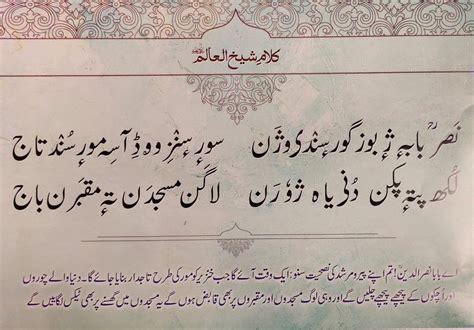 کلامِ شیخ العالمؒ
نصرؒ بابہٕ ژٕ بوز گور سٕندی وژن سور سٕنٛز ووڈِ آسہِ مور سُند تاج
لُکھ پتہٕ پکن دُنی یاہ ژوٗرن لاگن مسجدن تہٕ مقبرن باج
اے بابا نصر الدینؒ! تم اپنے پیر و مرشد کی نصیحت سنو: ایک وقت آئے گا جب خنزیر کو مور کی طرح تاجدار بنایا جائے گا۔ دنیا والے چوروں
اور اُچکوں کے پیچھے پیچھے چلیں گے اور وہی لوگ مسجدوں اور مقبروں پر بھی قابض ہوں گے یہ مسجدوں میں گھسنے پر بھی ٹیکس لگائیں گے